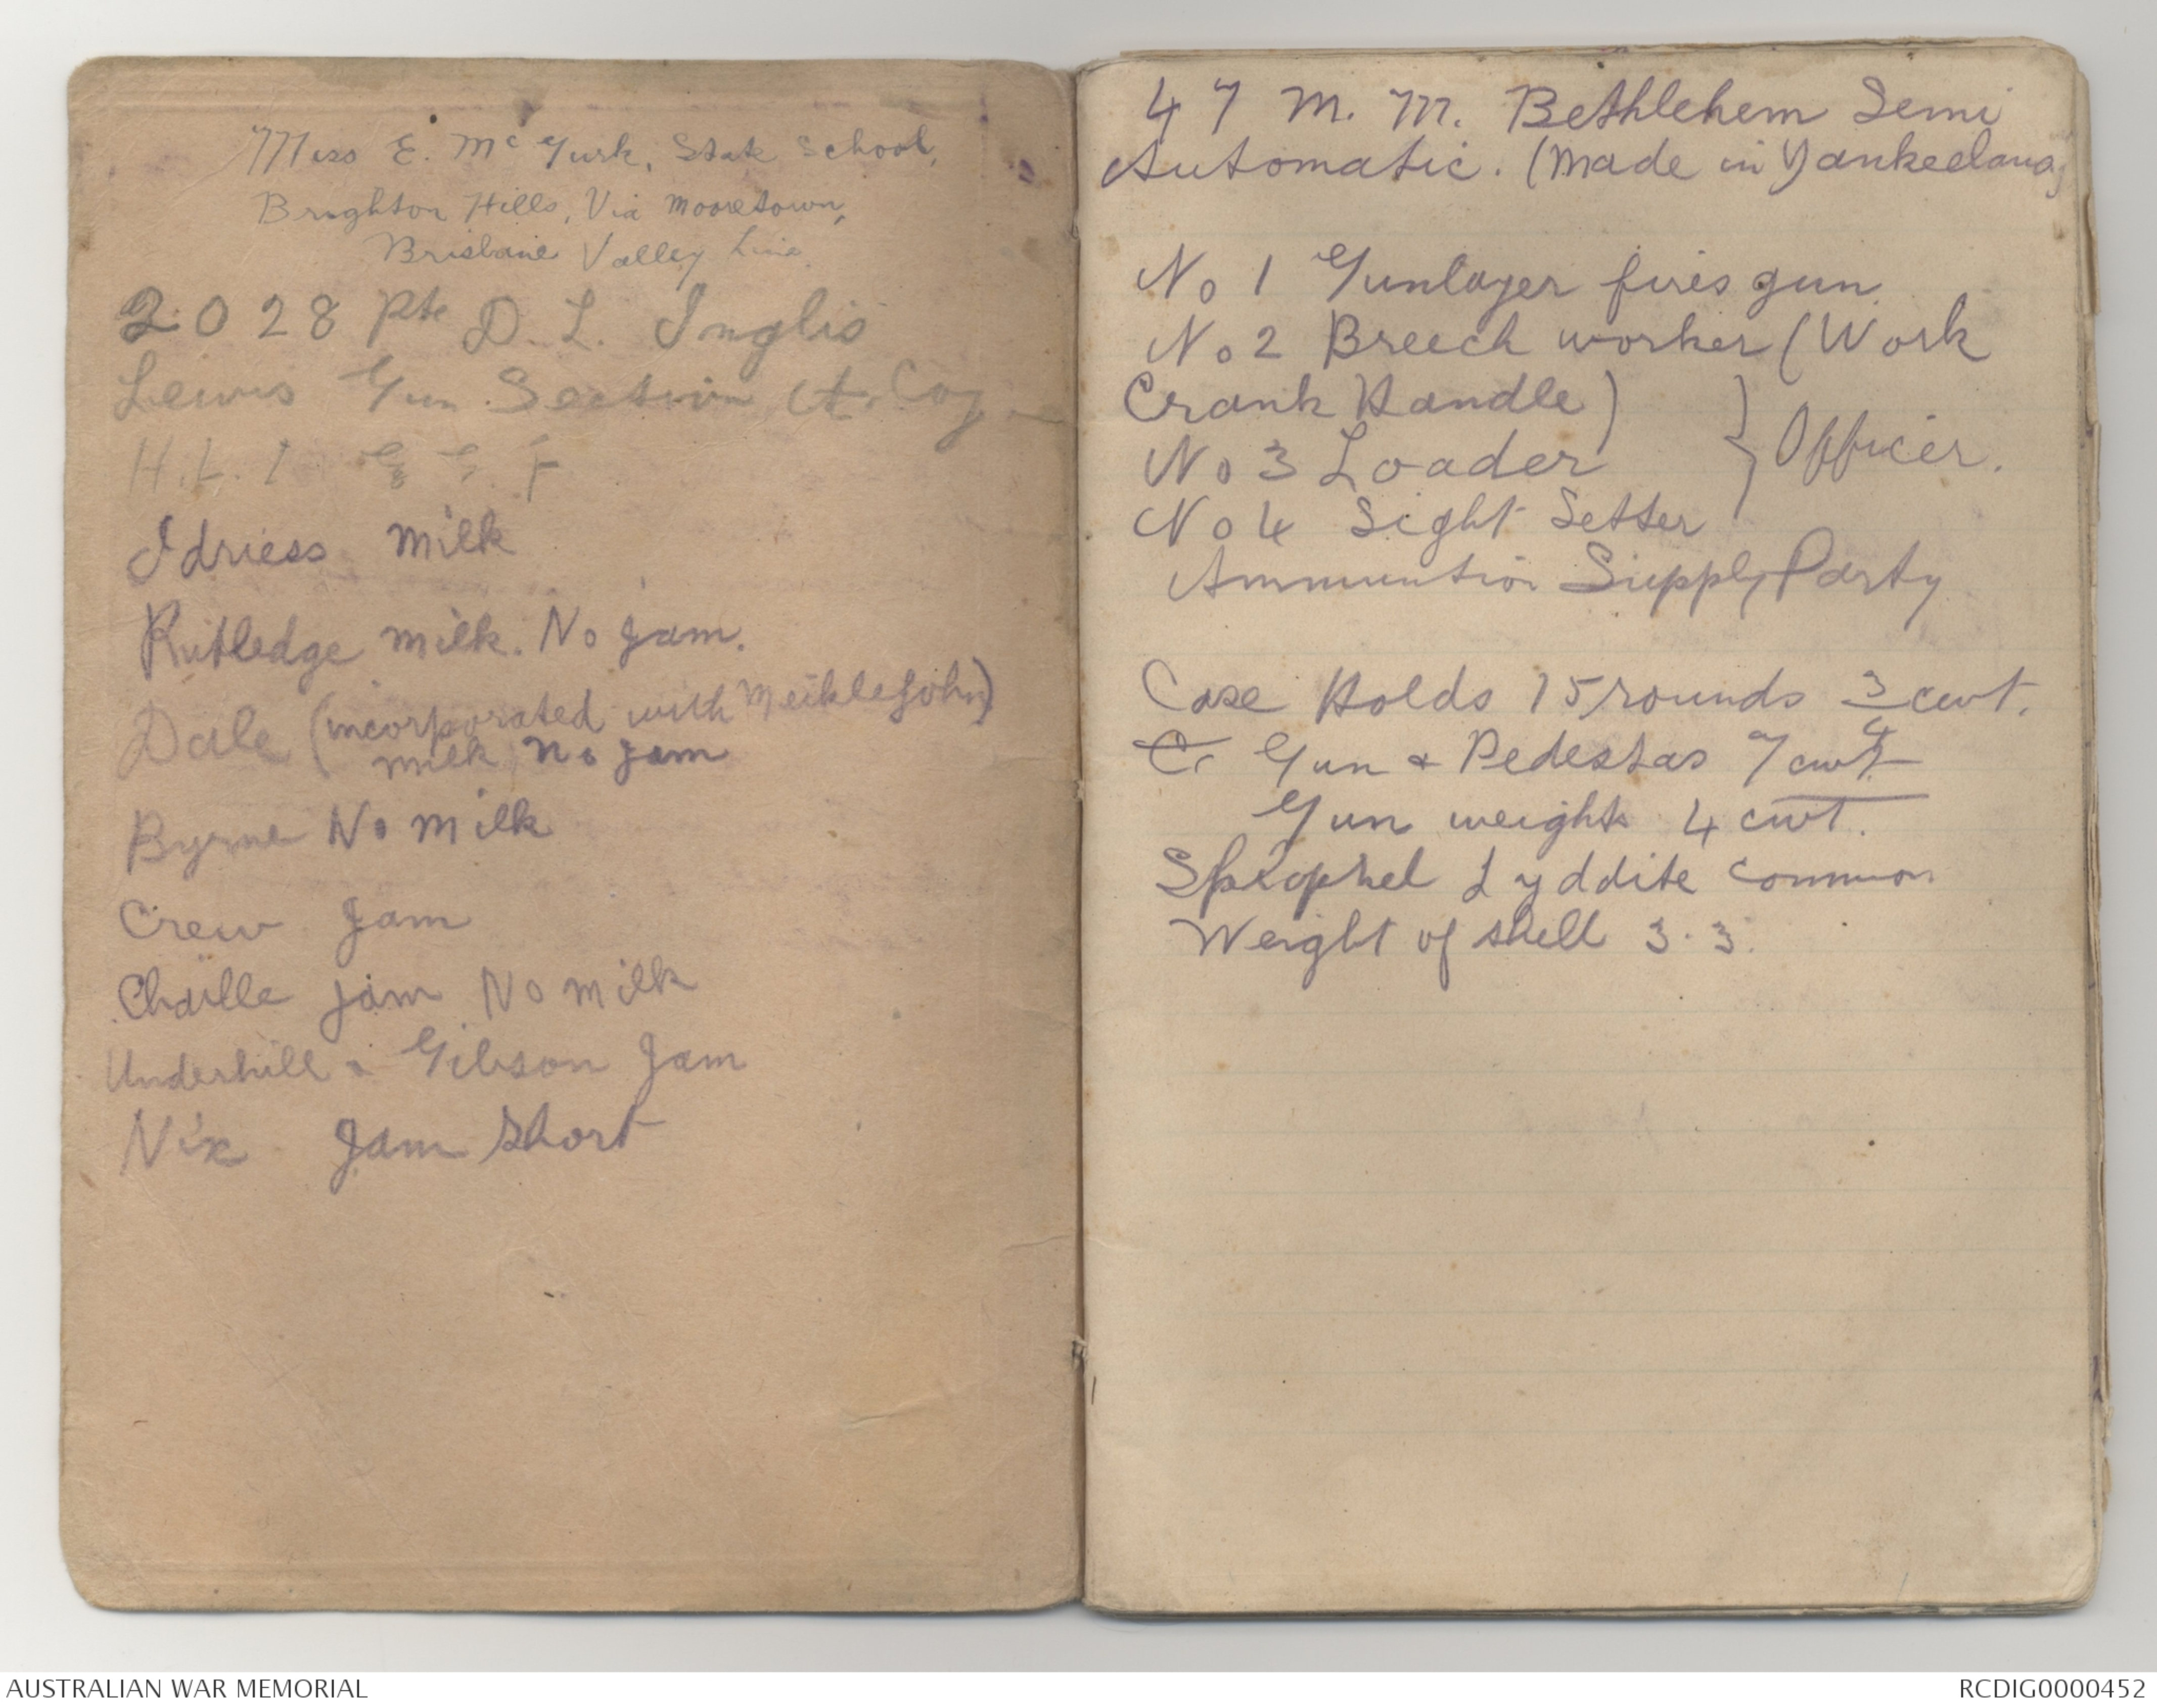 Miss E. McGurk, State School,
Brighton Hills, Via Mooretown,
Brisbane Valley Line
2028 Pte D. L. Inglis
Lewis Gun Section A. Coy
H. L. I. E. E. F
Idriess milk
Rutledge milk. No jam.
Dale (incorporated with Meiklejohn)
milk no jam
Byrne No milk
Crew Jam
Chaille jam No milk
Underhill & Gibson Jam
Nix Jam short
47 M. M. Bethlehem Semi
Automatic. (Made in Yankeeland)
No 1 Gunlayer fires gun
No 2 Breech worker (Work
Crank Handle)
No 3 Loader } Officer.
No 4 Sight Setter
Ammunition Supply Party
Case Holds 15 rounds 3/4 cwt.
C. Gun & Pedestas 7 cwt
Gun weight 4 cwt.
Lyddite common
Weight of shell 3.3.
AUSTRALIAN WAR MEMORIAL
RCDIG0000452